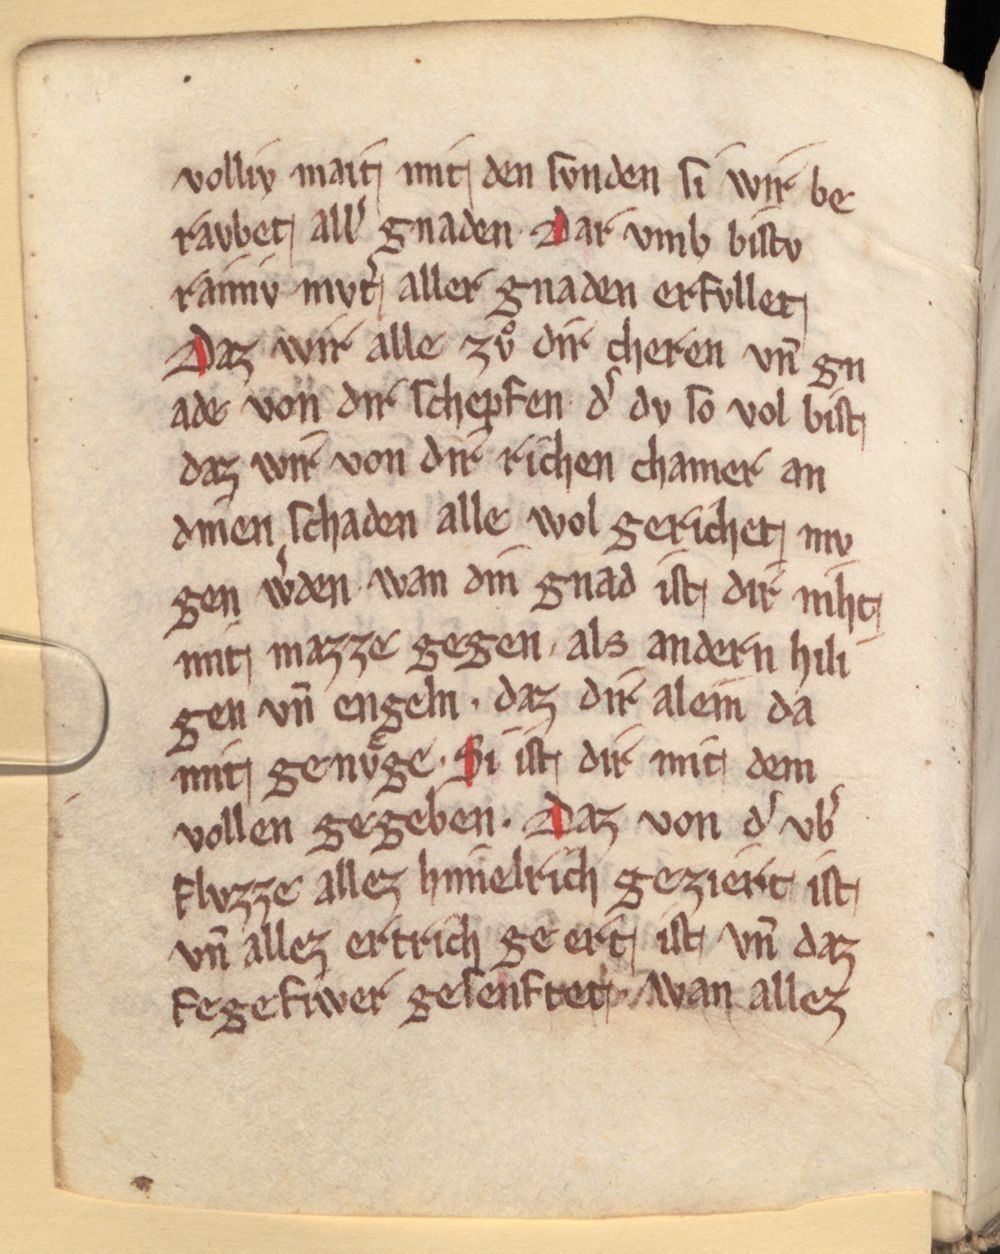 volliv mait mit den svnden si wir be
ravbet all' gnaden · Dar vmb bistv
rainiv mvt' aller gnaden erfvllet
Daz wir alle zvͦ dir cheren vn̄ gn
ade von dir schepfen · d' dv so vol bist
daz wir von dir richen chamer an
dinen schaden alle wol gerichet mv
gen w'den · wan din gnad ist dir niht
mit mazze gegen · als andern hili
gen vn̄ engeln · daz dir alein da
mit genvͤge · Si ist dir mit dem
vollen gegeben · Daz von d' vb'
flvzze allez himelrich geziert ist
vn̄ allez ertrich ge ert ist vn̄ daz
fegefiwer gesenftet · Wan allez